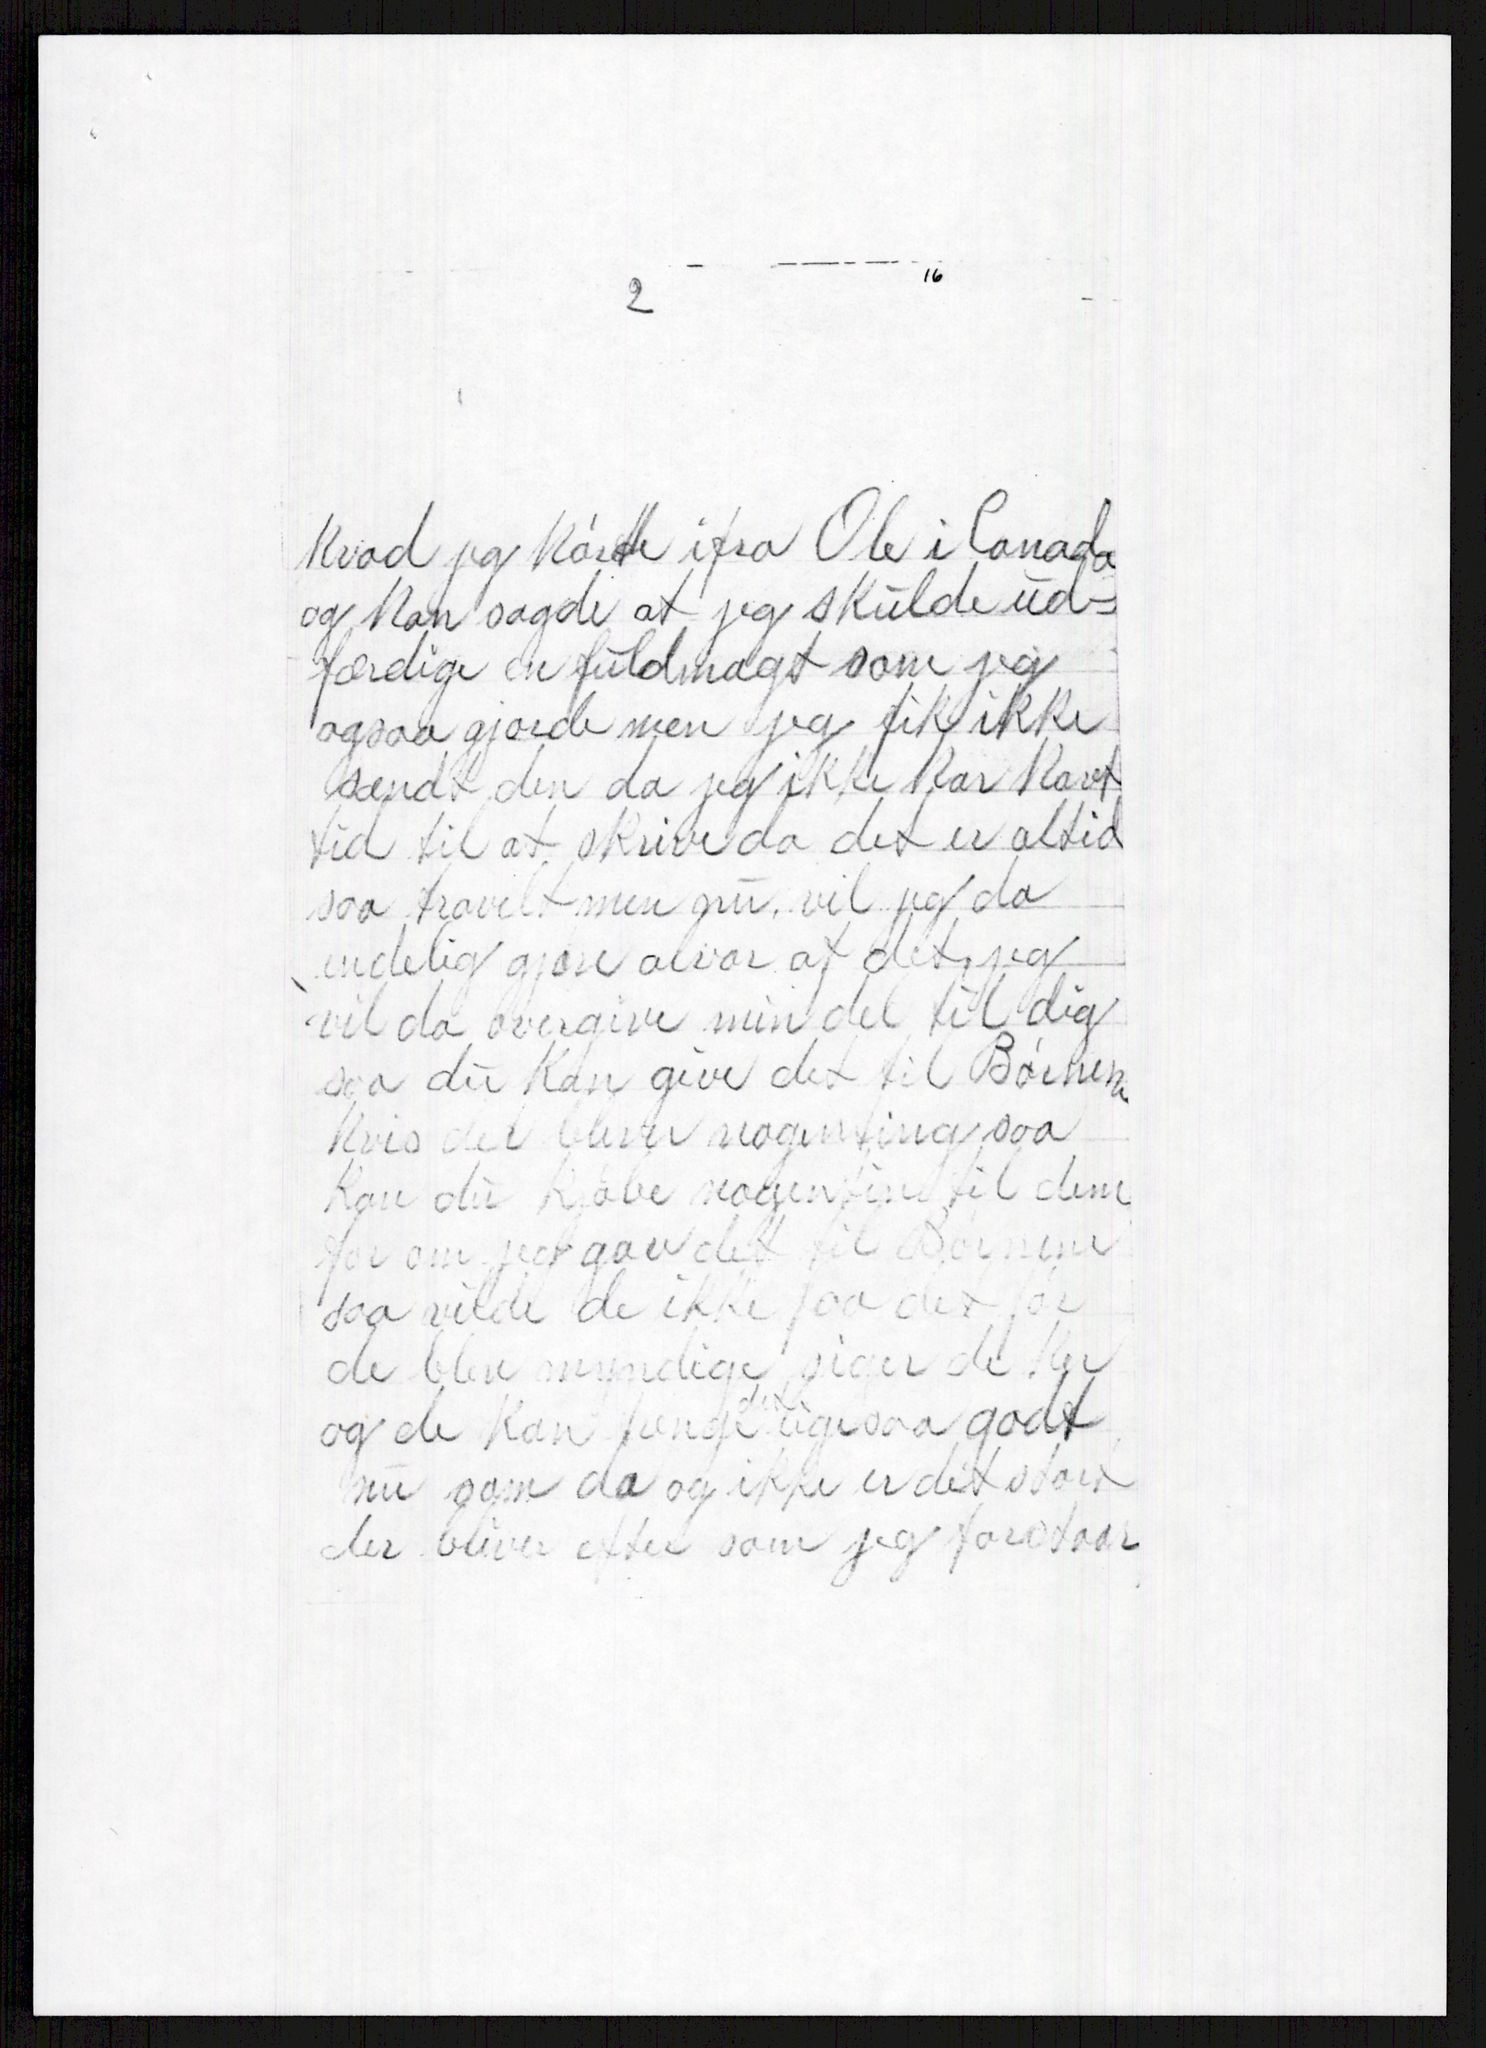 16
2
hvad jeg hørte ifra Ole i Canada
og han sagde at jeg skulde ud-
færdige en fuldmagt som jeg
ogsaa gjorde men jeg fik ikke
sendt den da jeg ikke har havt
tid til at skrive da det er altid
saa travelt men nu vil jeg da
endelig gjøre alvor af det, jeg
vil da overgive min del til dig
saa du kan give det til Børnene
hvis det bliver nogenting saa
kan du kjøbe nogenting til dem
for om jeg gav det til Børnene
saa vilde de ikke faa det før
de blev myndige siger de her
og de kan trenge det ligesaa godt
nu som da og ikke er det stort
der bliver efter som jeg forstaar